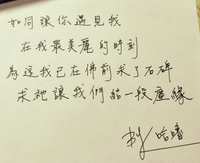 如何讓你遇見我
在我最美麗的時刻
為這我已在佛前求了
求祂讓我們結一段塵緣